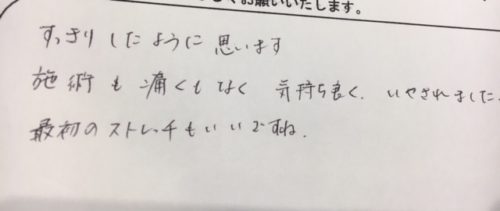 くお願いいたします。
すっきりしたように思います
施術も痛くもなく 気持ち良く、いやされました。
最初のストレッチもいいですね.